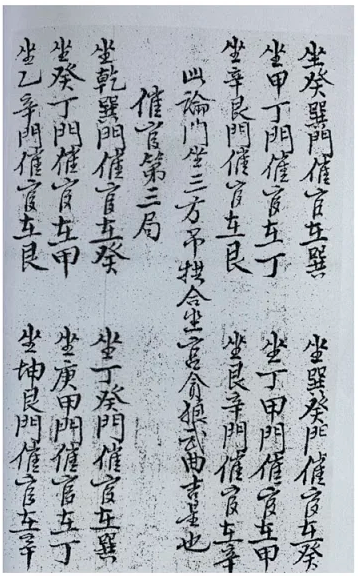 坐癸巽門催官在巽 坐巽癸門催官在癸
坐甲丁門催官在丁 坐丁甲門催官在甲
坐辛艮門催官在艮 坐艮辛門催官在辛
此論門坐三方吊拱合坐宮貪狼武曲吉星也
催官第三局
坐乾巽門催官在癸 坐丁癸門催官在巽
坐癸丁門催官在甲 坐庚甲門催官在丁
坐乙辛門催官在艮 坐坤艮門催官在辛